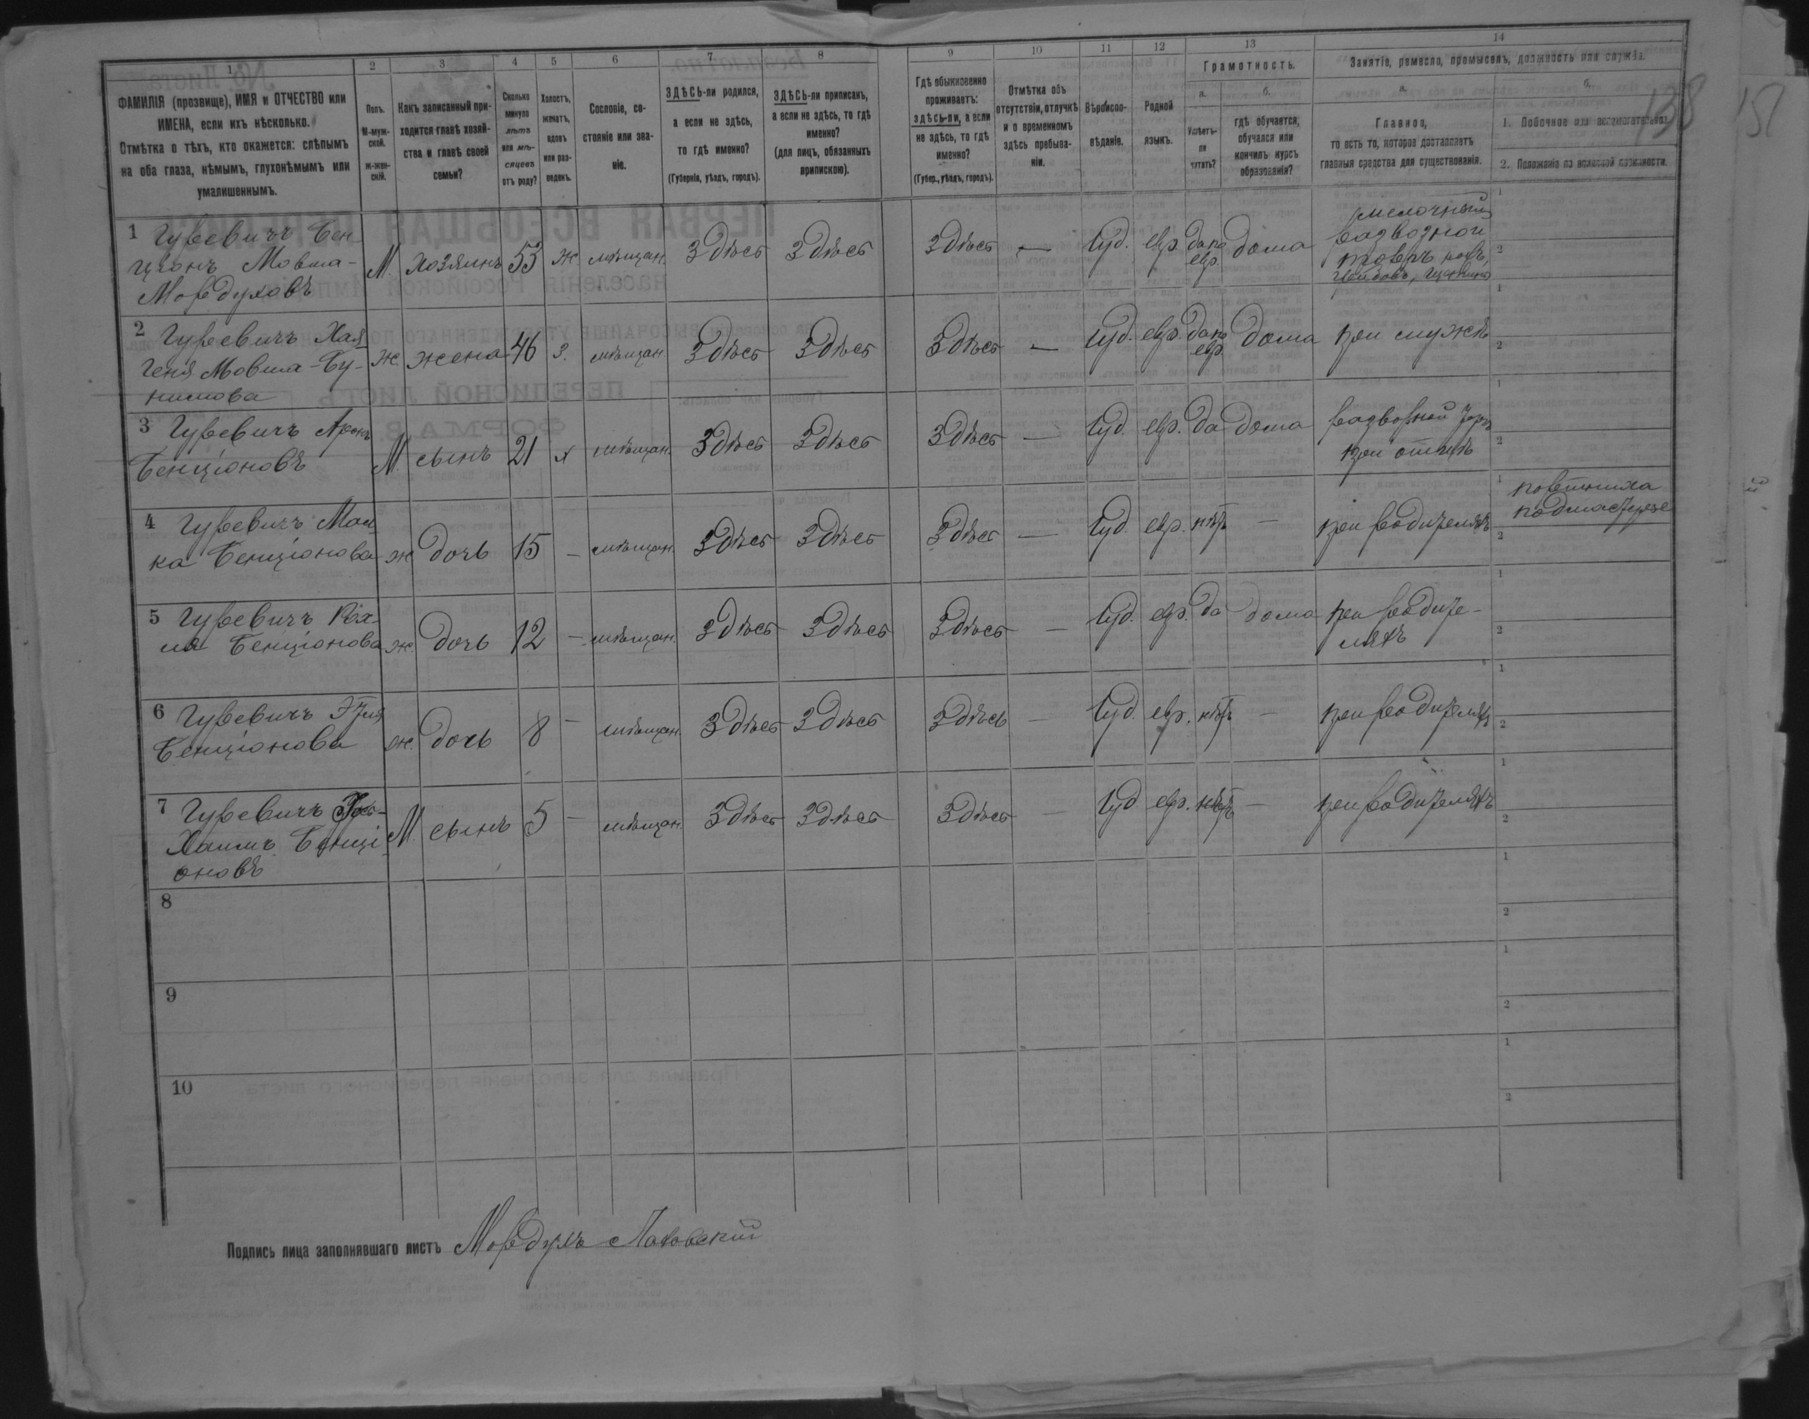 1 2 3 4 5 6 7 8 9 10 11 12 13 14
ФАМИЛІЯ (прозвище), ИМЯ и ОТЧЕСТВО или
ИМЕНА, если ихъ нѣсколько.
Отмѣтка о тѣхъ, кто окажется: слѣпымъ
на оба глаза, нѣмымъ, глухонѣмымъ или
умалишеннымъ.
Полъ.
М-муж-
ской.
Ж-жен-
скій.
Какъ записанный при-
ходится главѣ хозяй-
ства и главѣ своей
семьи?
Сколько
минуло
лѣтъ
или мѣ-
сяцевъ
отъ роду?
Холостъ,
женатъ,
вдовъ
или раз-
веденъ.
Сословіе, со-
стояніе или зва-
ніе.
ЗДѢСЬ-ли родился,
а если не здѣсь,
то гдѣ именно?
(Губернія, уѣздъ, городъ).
ЗДѢСЬ-ли приписанъ,
а если не здѣсь, то гдѣ
именно?
(для лицъ, обязанныхъ
припискою).
Гдѣ обыкновенно
проживаетъ:
здѣсь-ли, а если
не здѣсь, то гдѣ
именно?
(Губер., уѣздъ, городъ).
Отмѣтка объ
отсутствіи, отлучкѣ
и о временномъ
здѣсь пребыва-
ніи.
Вѣроиспо-
вѣданіе.
Родной
языкъ.
Грамотность.
а. б.
Умѣетъ-
ли
читать?
гдѣ обучается,
обучался или
кончилъ курсъ
образованія?
Занятіе, ремесло, промыселъ, должность или служба.
а. б.
Главное,
то есть то, которое доставляетъ
главныя средства для существованія.
1. Побочное или вспомогательное.
2. Положеніе по воинской повинности.
138 151
1 Гуревичъ Бен-
ціонъ Мовша-
Мордуховъ
М. хозяинъ 53 ж мѣщан. Здѣсь Здѣсь Здѣсь — Іуд. евр. да по евр дома
мелочный
развозной
2 Гуревичъ Хая
Геня Мовша-Бу-
нимова
ж жена 46 з. мѣщан. Здѣсь Здѣсь Здѣсь — Іуд. евр. да по евр. дома при мужѣ
3 Гуревичъ Аронъ
Бенціоновъ
М. сынъ 21 х мѣщан. Здѣсь Здѣсь Здѣсь — Іуд. евр. да дома развозной торг
при отцѣ
4 Гуревичъ Мал
ка Бенціонова
ж дочь 15 — мѣщан. Здѣсь Здѣсь Здѣсь — Іуд. евр. нѣтъ — при родителяхъ
портниха
подмастерье
5 Гуревичъ Рох-
ля Бенціонова
ж дочь 12 — мѣщан. Здѣсь Здѣсь Здѣсь — Іуд. евр. да дома при родите-
ляхъ
6 Гуревичъ Этля
Бенціонова
ж. дочь 8 — мѣщан. Здѣсь Здѣсь Здѣсь — Іуд. евр. нѣтъ — при родителяхъ
7 Гуревичъ
Хаимъ Бенці
оновъ
М сынъ 5 — мѣщан. Здѣсь Здѣсь Здѣсь — Іуд евр. нѣтъ — при родителяхъ
8
9
10
Подпись лица заполнявшаго листъ Мордухъ